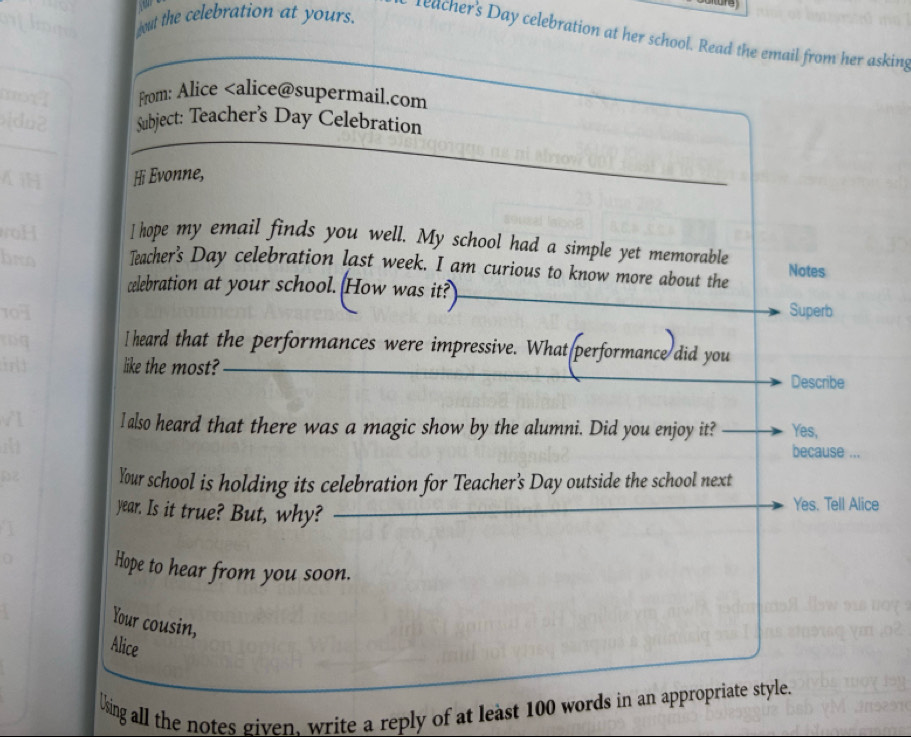 Teacher's Day celebration at her school. Read the email from her asking
about the celebration at yours.
From: Alice <alice@supermail.com
Subject: Teacher's Day Celebration
Hi Evonne,
I hope my email finds you well. My school had a simple yet memorable
Teacher's Day celebration last week. I am curious to know more about the
celebration at your school. How was it?
Notes
Superb
I heard that the performances were impressive. What performance did you
like the most?
Describe
I also heard that there was a magic show by the alumni. Did you enjoy it?
Yes,
because ...
Your school is holding its celebration for Teacher's Day outside the school next
year. Is it true? But, why?
Yes. Tell Alice
Hope to hear from you soon.
Your cousin,
Alice
Using all the notes given, write a reply of at least 100 words in an appropriate style.